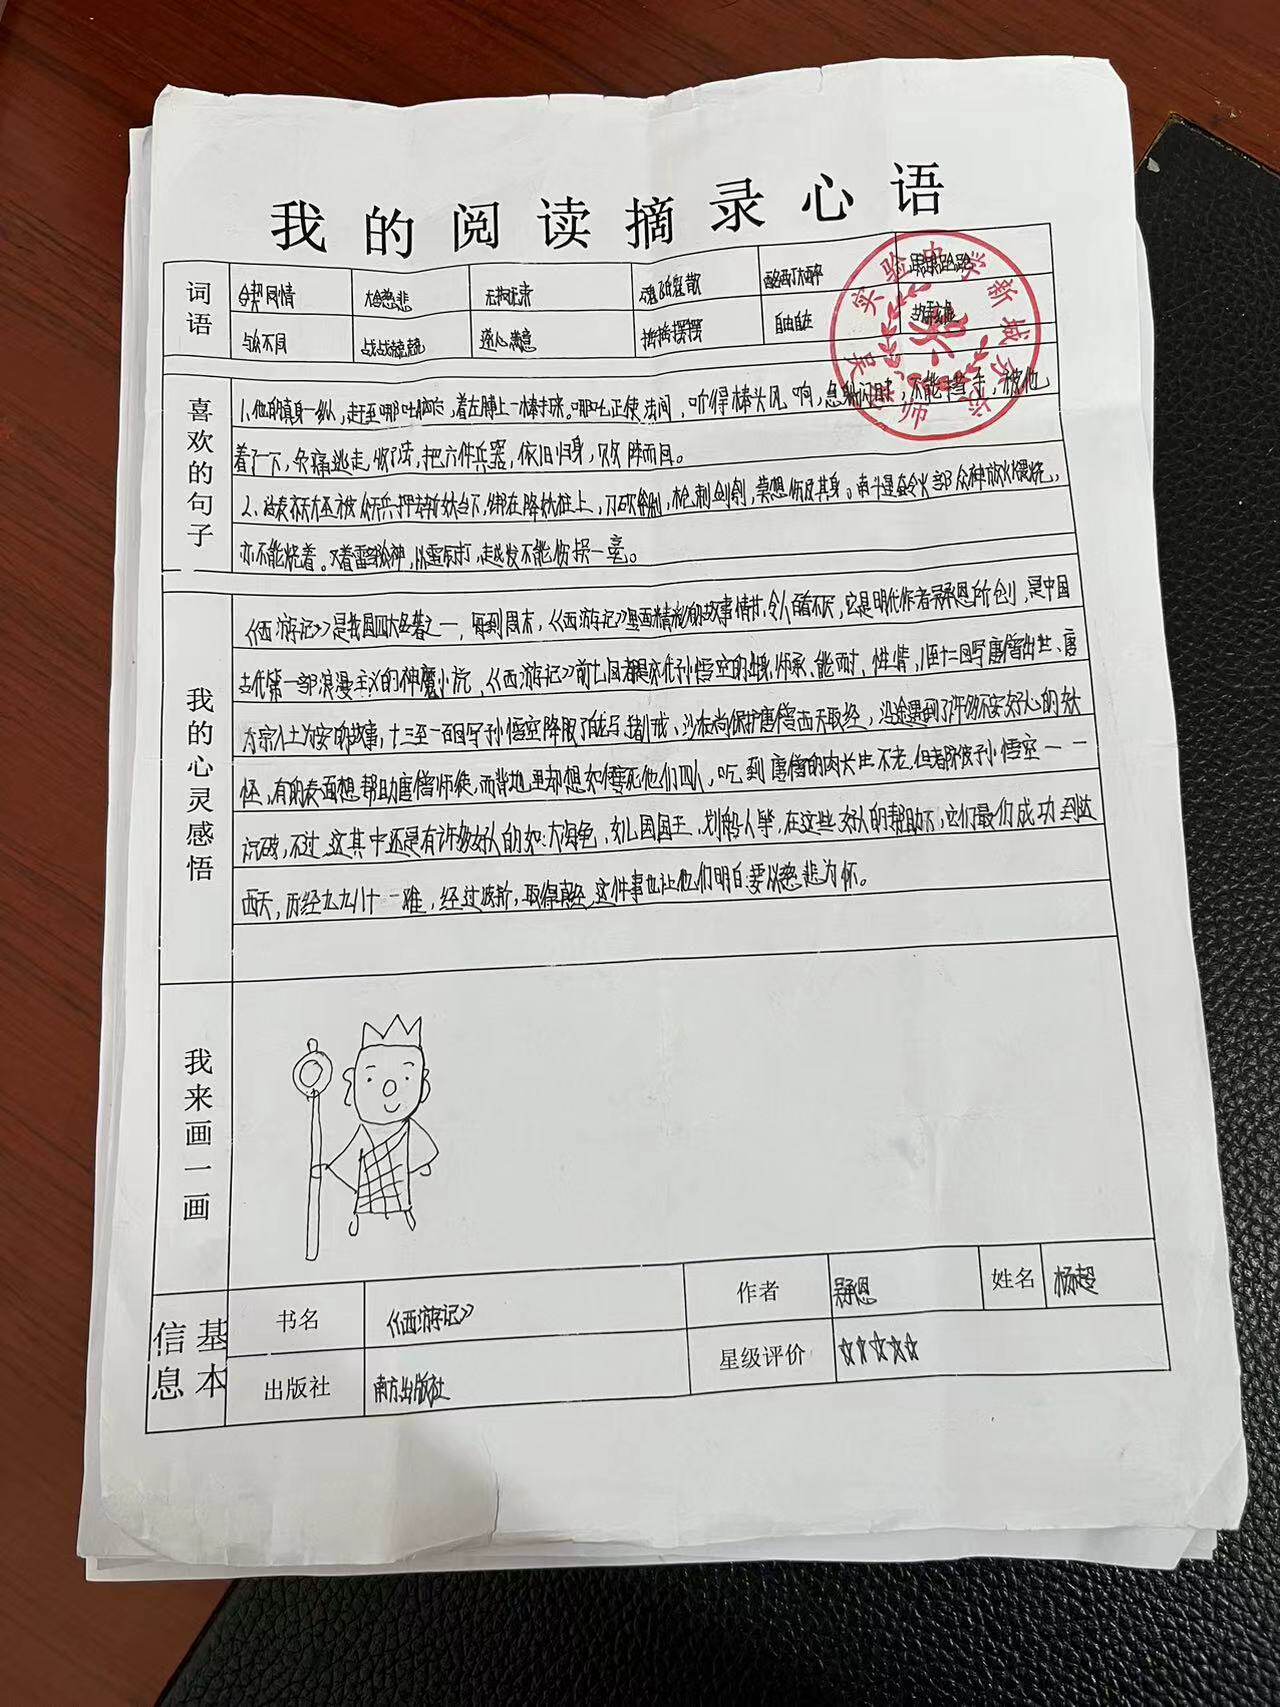 我的阅读摘录心语
词语
大慈大悲 无拘无束 魂飞魄散 酩酊大醉
与众不同 战战兢兢 遂心满意 摇摇摆摆 自由自在
实验中学新城
师
喜欢的句子
1、他的真身一纵,赶至哪吒脑后,着左膊上一棒打来。哪吒正使法间,听得棒头风响,急躲闪时,不能措手,被他
着了一下,负痛逃走,收了法,把六件兵器,依旧归身,败阵而回。
2、话表齐天大圣被众天兵押去斩妖台下,绑在降妖柱上,刀砍斧剁,枪刺剑刳,莫想伤及其身。南斗星奋令火部众神放火煨烧,
亦不能烧着。又着雷部众神,以雷屑钉打,越发不能伤损一毫。
我的心灵感悟
《西游记》是我国四大名著之一,每到周末,《西游记》里面精彩的故事情节,令人百看不厌,它是明代作者吴承恩所创,是中国
古代第一部浪漫主义的神魔小说,《西游记》前七回都是交代孙悟空的出身、师承、能耐、性情,八至十二回写唐僧出世、唐
太宗入土为安的故事,十三至一百回写孙悟空降服了白龙马、猪八戒、沙和尚保护唐僧西天取经,沿途遇到了许多不安好心的妖
怪,有的表面想帮助唐僧师徒,而背地里却想如何害死他们四人,吃到唐僧的肉长生不老,但都被孙悟空一一
识破,不过,这其中还是有许多好人的如:大海龟,女儿国国王,划船人等,在这些好人的帮助下,它们最们成功到达
西天,历经九九八十一难,经过波折,取得真经,这件事也让他们明白要以慈悲为怀。
我来画一画
基本信息
书名 《西游记》 作者 吴承恩 姓名 杨超
出版社 南方出版社 星级评价 ☆☆☆☆☆